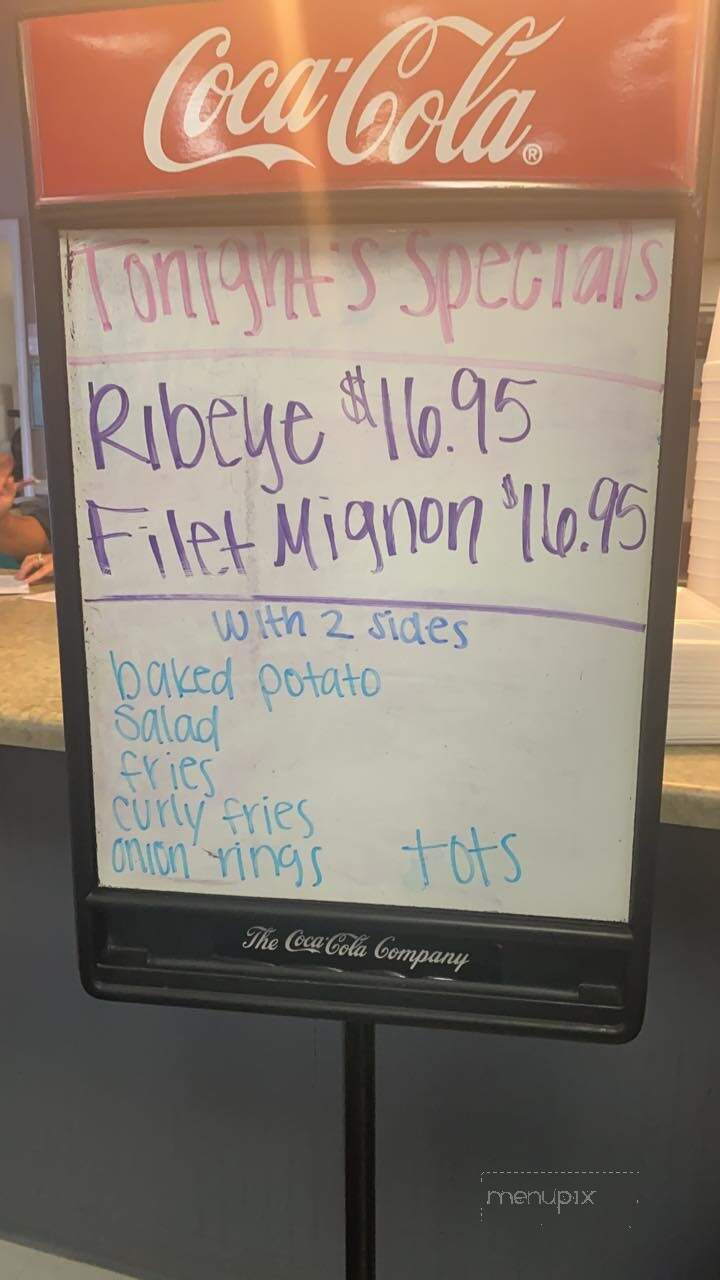 Coca-Cola®
Tonight's Specials
Ribeye $16.95
Filet Mignon $16.95
with 2 sides
baked potato
salad
fries
curly fries
onion rings tots
The Coca-Cola Company
menupix